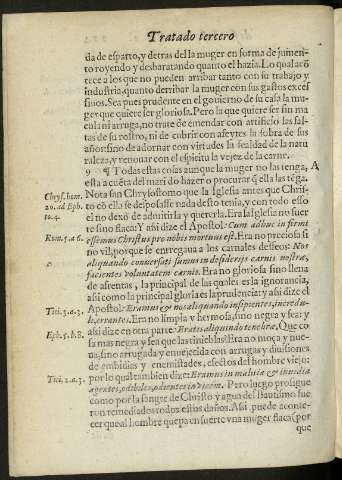 Tratado tercero
da de esparto, y detras della muger en forma de jumen-
to royendo y desbaratando quanto el hazia. Lo qual acō
tece a los que no pueden arribar tanto con su trabajo y
industria, quanto derribar la muger con sus gastos exces
siuos. Sea pues prudente en el gouierno de su casa la mu-
ger que quiere ser gloriosa. Pero la que quiere ser sin ma
cula ni arruga, no trate de emendar con artificio las fal-
tas de su rostro, ni de cubrir con afeytes la sobra de sus
años: sino de adornar con virtudes la fealdad de la natu
raleza, y renouar con el espiritu la vejez de la carne.
9 ¶ Todas estas cosas aunque la muger no las tenga, A
esta a cuēta del marido hazer o procurar q̄ ella las tēga.
Chrys. hom.
20. ad Eph.
to. 4.
Nota san Chrysostomo que la Iglesia antes que Chris-
to cō ella se desposasse nada desto tenia, y con todo esso
el no dexó de admitirla y quererla. Era la Iglesia no fuer
te sino flaca: Y assi dize el Apostol: Cum adhuc in firmi
Rom. 5. a 6.
essemus Christus pro nobis mortuus est. Era no preciosa si
no vil, porque se entregaua a los carnales desseos: Nos
aliquando conuersati sumus in desiderijs carnis nostræ,
facientes voluntatem carnis. Era no gloriosa sino llena
de afrentas, la principal de las quales es la ignorancia,
assi como la principal gloria es la prudencia: y assi dize el
Titi. 3. a. 3.
Apostol: Eramus & nos aliquando insipientes, incredu-
li, errantes. Era no limpia y hermosa, sino negra y fea: y
Eph. 5. b. 8.
assi dize en otra parte: Eratis aliquando tenebræ, Que co
sa mas negra y fea que las tinieblas? Era no moça y nue-
ua, sino arrugada y enuejecida con arrugas y diuisiones
de embidias y enemistades, efectos del hombre viejo:
Titi. 3. a. 3.
por lo qual tambien dize: Eramus in malitia & inuidia
agentes, odibiles, odientes inuicem. Pero luego prosigue
como por la sangre de Christo y agua del Bautismo fue
ron remediados todos estos daños. Assi puede aconte-
cer que al hombre quepa en suerte vna muger flaca: por
que